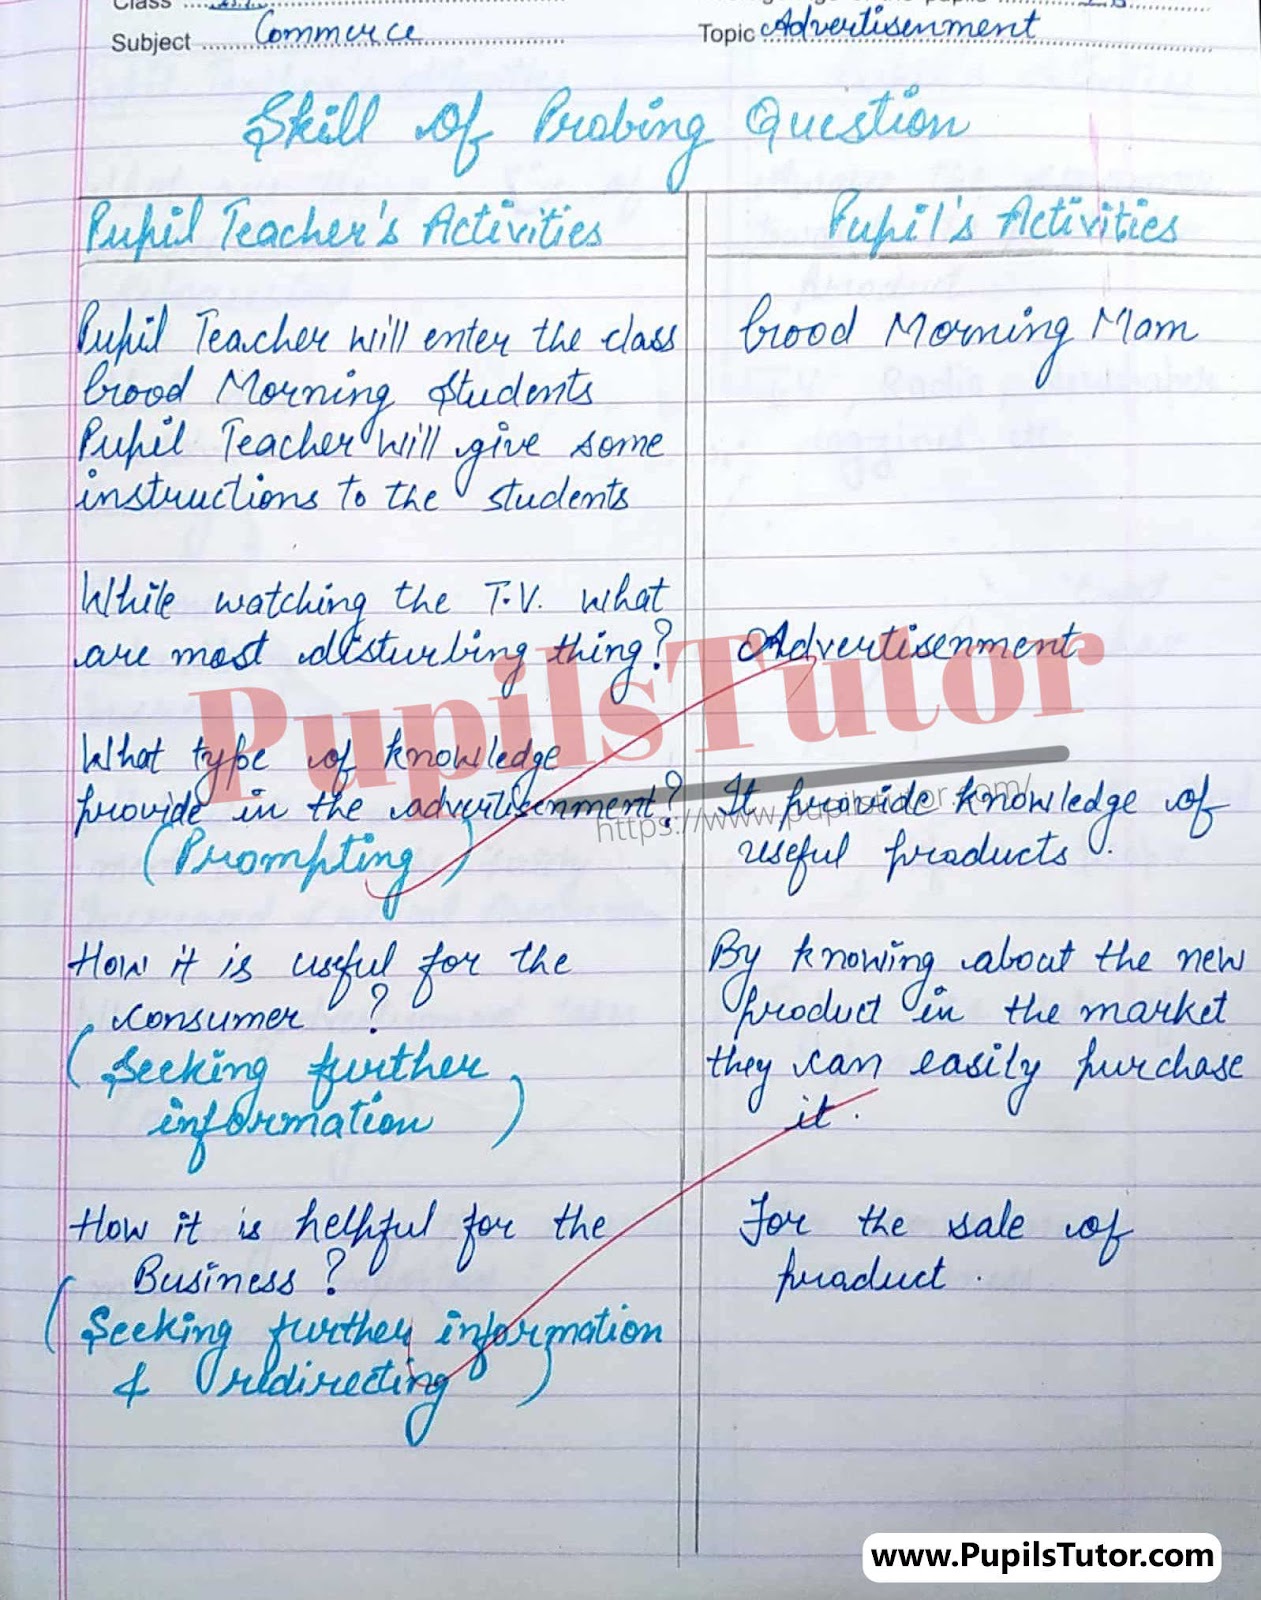 Class
Subject Commerce
Topic Advertisenment
Skill of Probing Question
Pupil Teacher's Activities
Pupil's Activities
Pupil Teacher will enter the class
Good Morning Students
Pupil Teacher will give some
instructions to the students
Good Morning Mam
While watching the T.V. what
are most disturbing thing?
Advertisenment
What type of knowledge
provide in the advertisenment?
(Prompting)
It provide knowledge of
useful products.
How it is useful for the
consumer?
(Seeking further
information)
By knowing about the new
product in the market
they can easily purchase
it.
How it is helpful for the
Business?
(Seeking further information
& redirecting)
For the sale of
product.
PupilsTutor
https://www.pupilstutor.com/
www.PupilsTutor.com